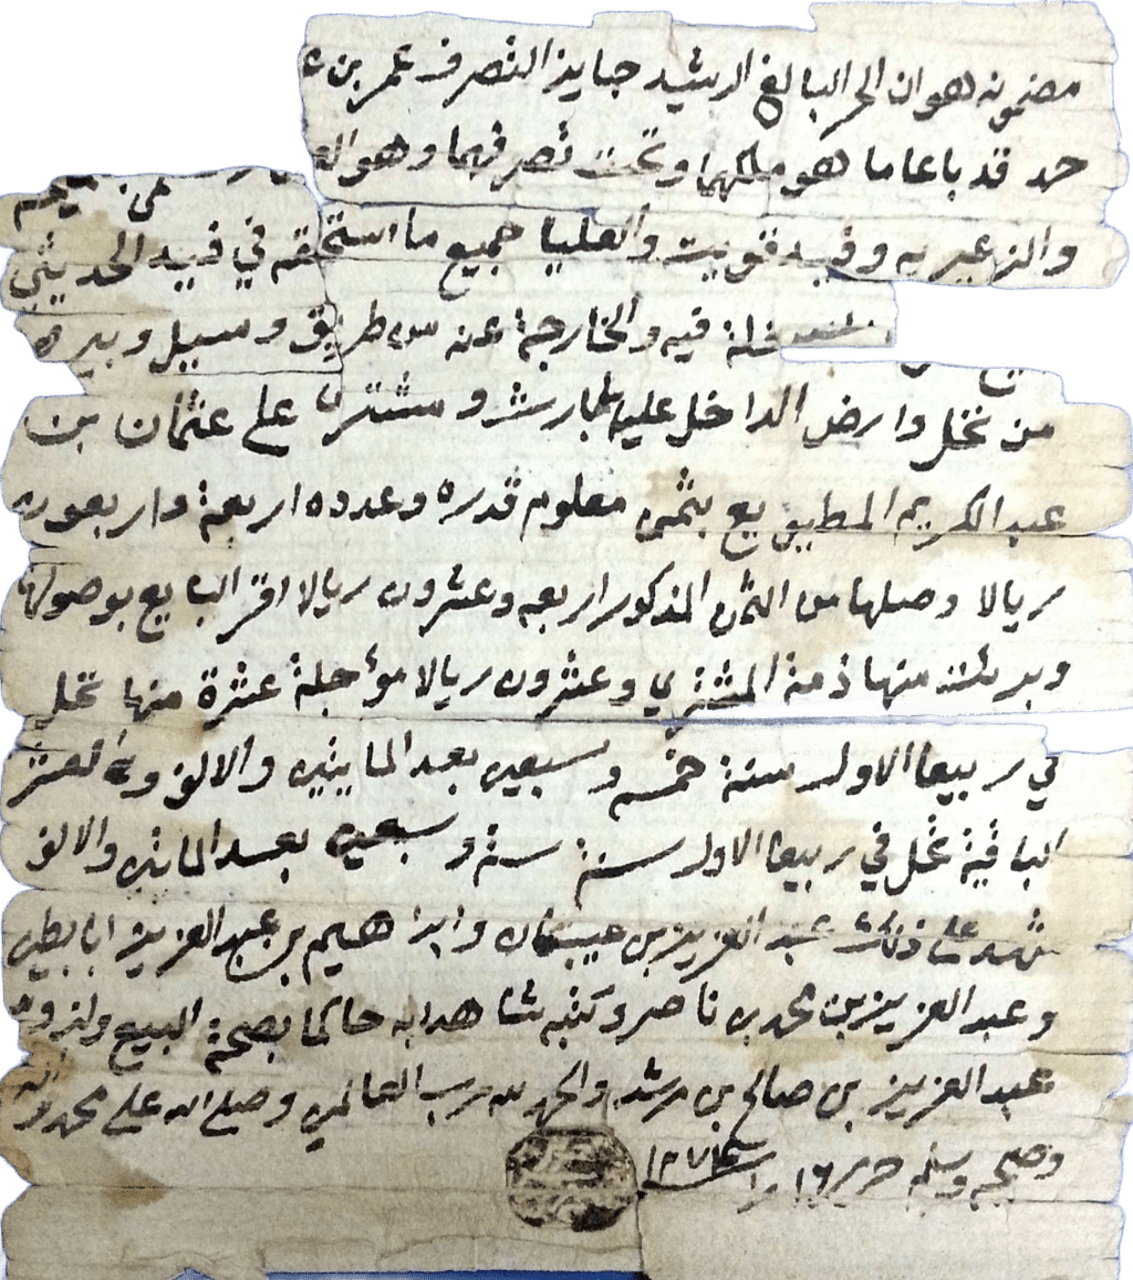 مضمونه هو ان الحر البالغ الرشيد جايز التصرف عمر بن
حمد قد باعا ما هو ملكهما وتحت تصرفهما وهو
من
والزعيريه وفيد قويت والعليا جميع ما استحقه في فيد الحديثي
داخلة فيه والخارجة عنه من طريق وسبيل وبير
من نخل وارض الداخل عليهما بارث ومشترى على عثمان بن
عبد الكريم المطيويع بثمن معلوم قدره وعدده اربعة واربعون
ريالا وصلها من الثمن المذكور اربعه وعشرون ريالا اقر البايع بوصولها
وبرئت منها ذمة المشتري وعشرون ريالا مؤجلة عشرة منها تحل
في ربيعا الاول سنة خمسه وسبعين بعد المايتين والالف والعشر
الباقية تحل في ربيعا الاول سنة ستة وسبعين بعد المايتين والالف
شهد على ذلك عبد العزيز بن عيبان وابراهيم بن عبد العزيز ابا بطين
وعبد العزيز بن محمد بن ناصر وكتبه شاهدا به حاكما بصحة البيع ولزومه
عبد العزيز بن صالح بن مرشد والحمد لله رب العالمين وصلى الله على محمد واله
وصحبه وسلم حرر ١٦ را سنة ١٢٧٤